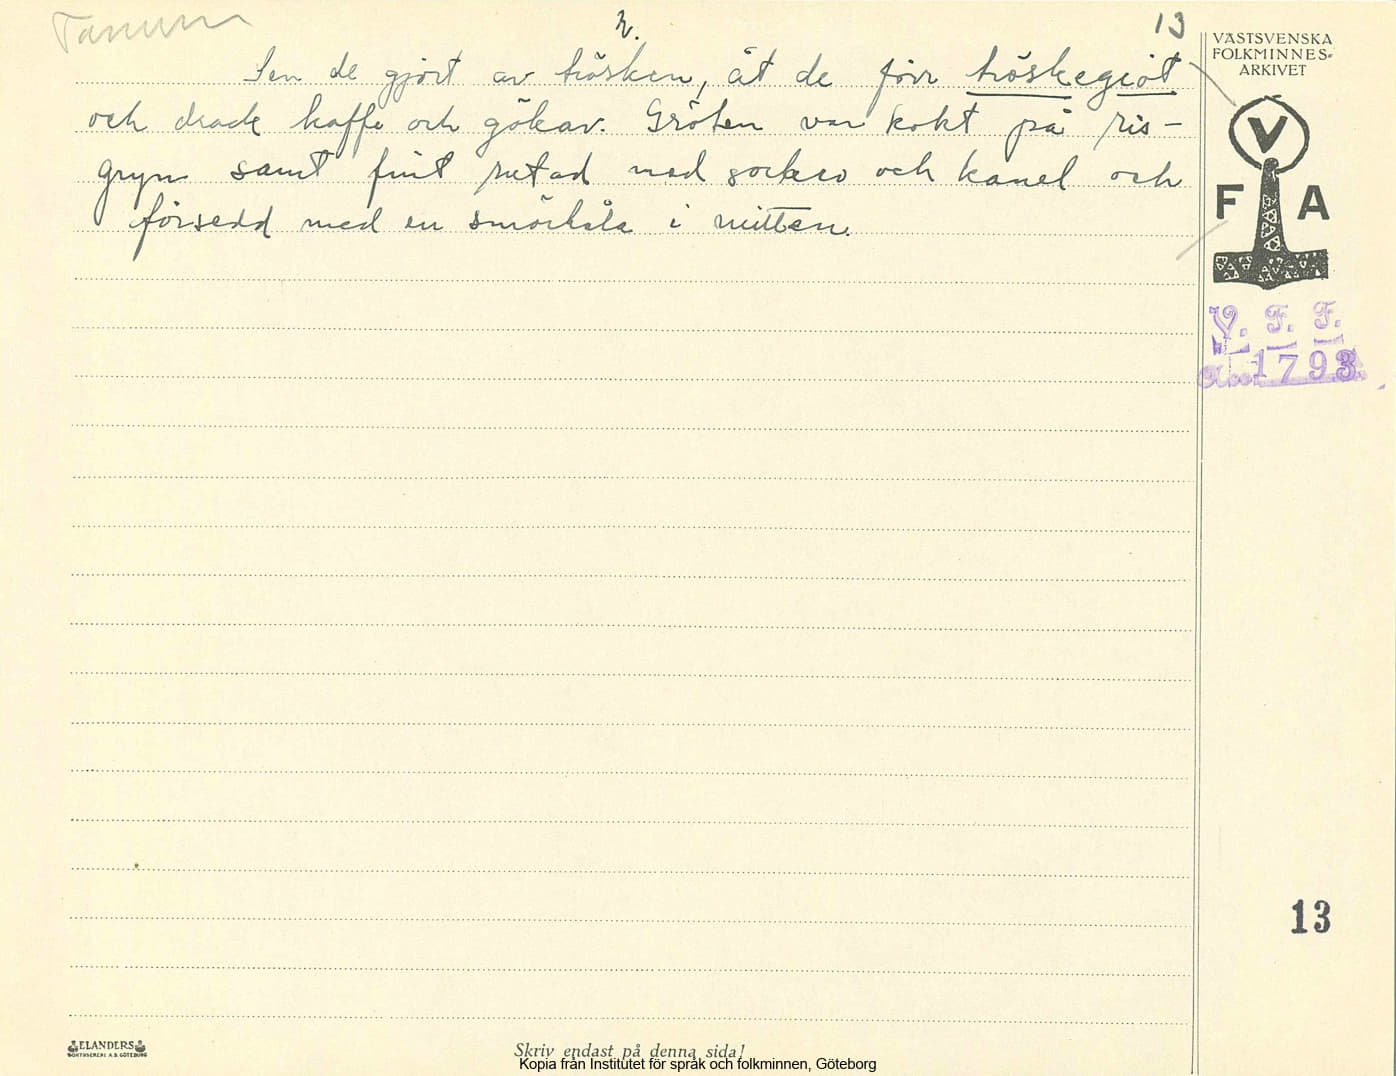 Tanum
2.
13
Sen de gjort av trösken, åt de förr tröskegröt
och drack kaffe och gökar. Gröten var kokt på ris-
gryn samt fint rutad med socker och kanel och
försedd med en smörhåla i mitten.
VÄSTSVENSKA
FOLKMINNES-
ARKIVET
V
F A
V. F. F.
1793
13
ELANDERS
BOKTRYCKERI A.B. GÖTEBORG
Skriv endast på denna sida!
Kopia från Institutet för språk och folkminnen, Göteborg